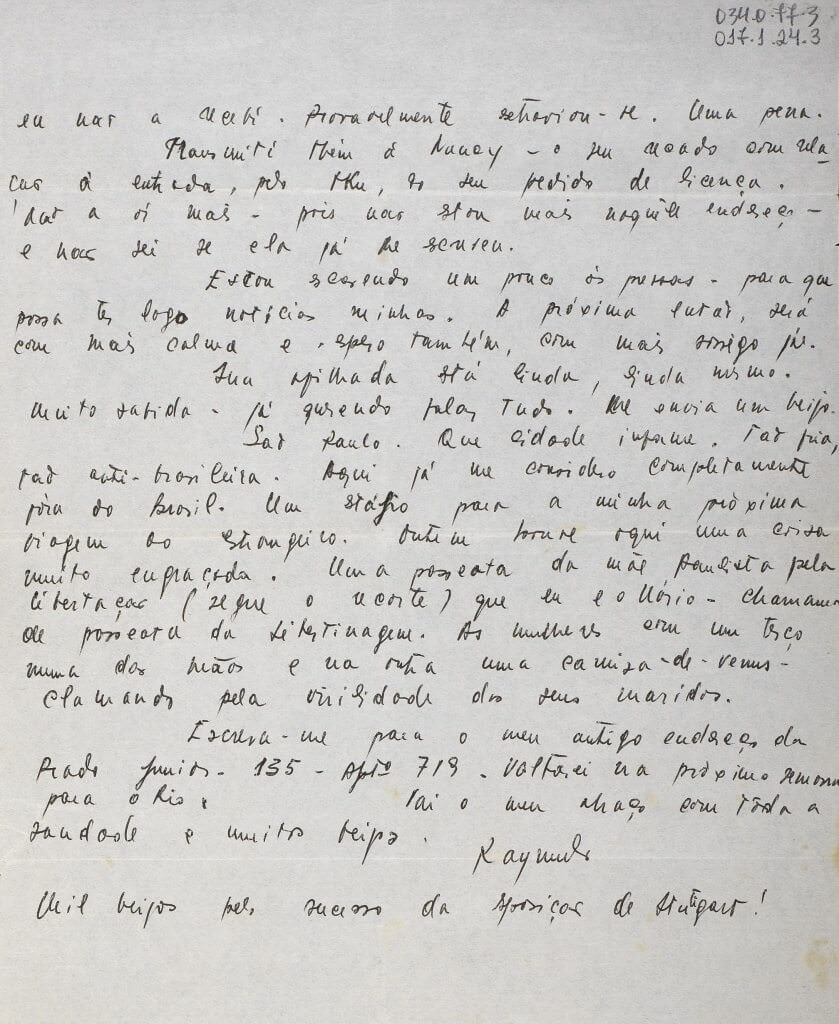 034.0.77-3
017.1.24.3
eu não a recebi. Provavelmente extraviou-se. Uma pena.
Transmiti tbém à Nancy - o seu recado com rela
ção à entrada, pelo Itu, do seu pedido de licença.
Não a vi mais - pois não estou mais naquele endereço -
e não sei se ela já lhe escreveu.
Estou escrevendo um pouco às pressas - para que
possa ter logo notícias minhas. A próxima então, será
com mais calma e espero também, com mais sossego já.
Sua afilhada está linda, linda mesmo.
Muito sabida - já querendo falar tudo. Lhe envia um beijo.
São Paulo. Que cidade infame. Tão fria,
tão anti-brasileira. Aqui já me considero completamente
fóra do Brasil. Um estágio para a minha próxima
viagem ao estrangeiro. Ontem houve aqui uma coisa
muito engraçada. Uma passeata da mãe Paulista pela
libertação (segue o recorte) que eu e o Mário - chamamos
de passeata da Libertinagem. As mulheres com um terço
numa das mãos e na outra uma camisa-de-venus -
clamando pela virilidade dos seus maridos.
Escreva-me para o meu antigo endereço da
Prado Junior - 135 - aptº 719. Voltarei na próxima semana
para o Rio. Vai o meu abraço com tôda a
saudade e muitos beijos.
Raymundo
Mil beijos pelo sucesso da exposição de Stuttgart!